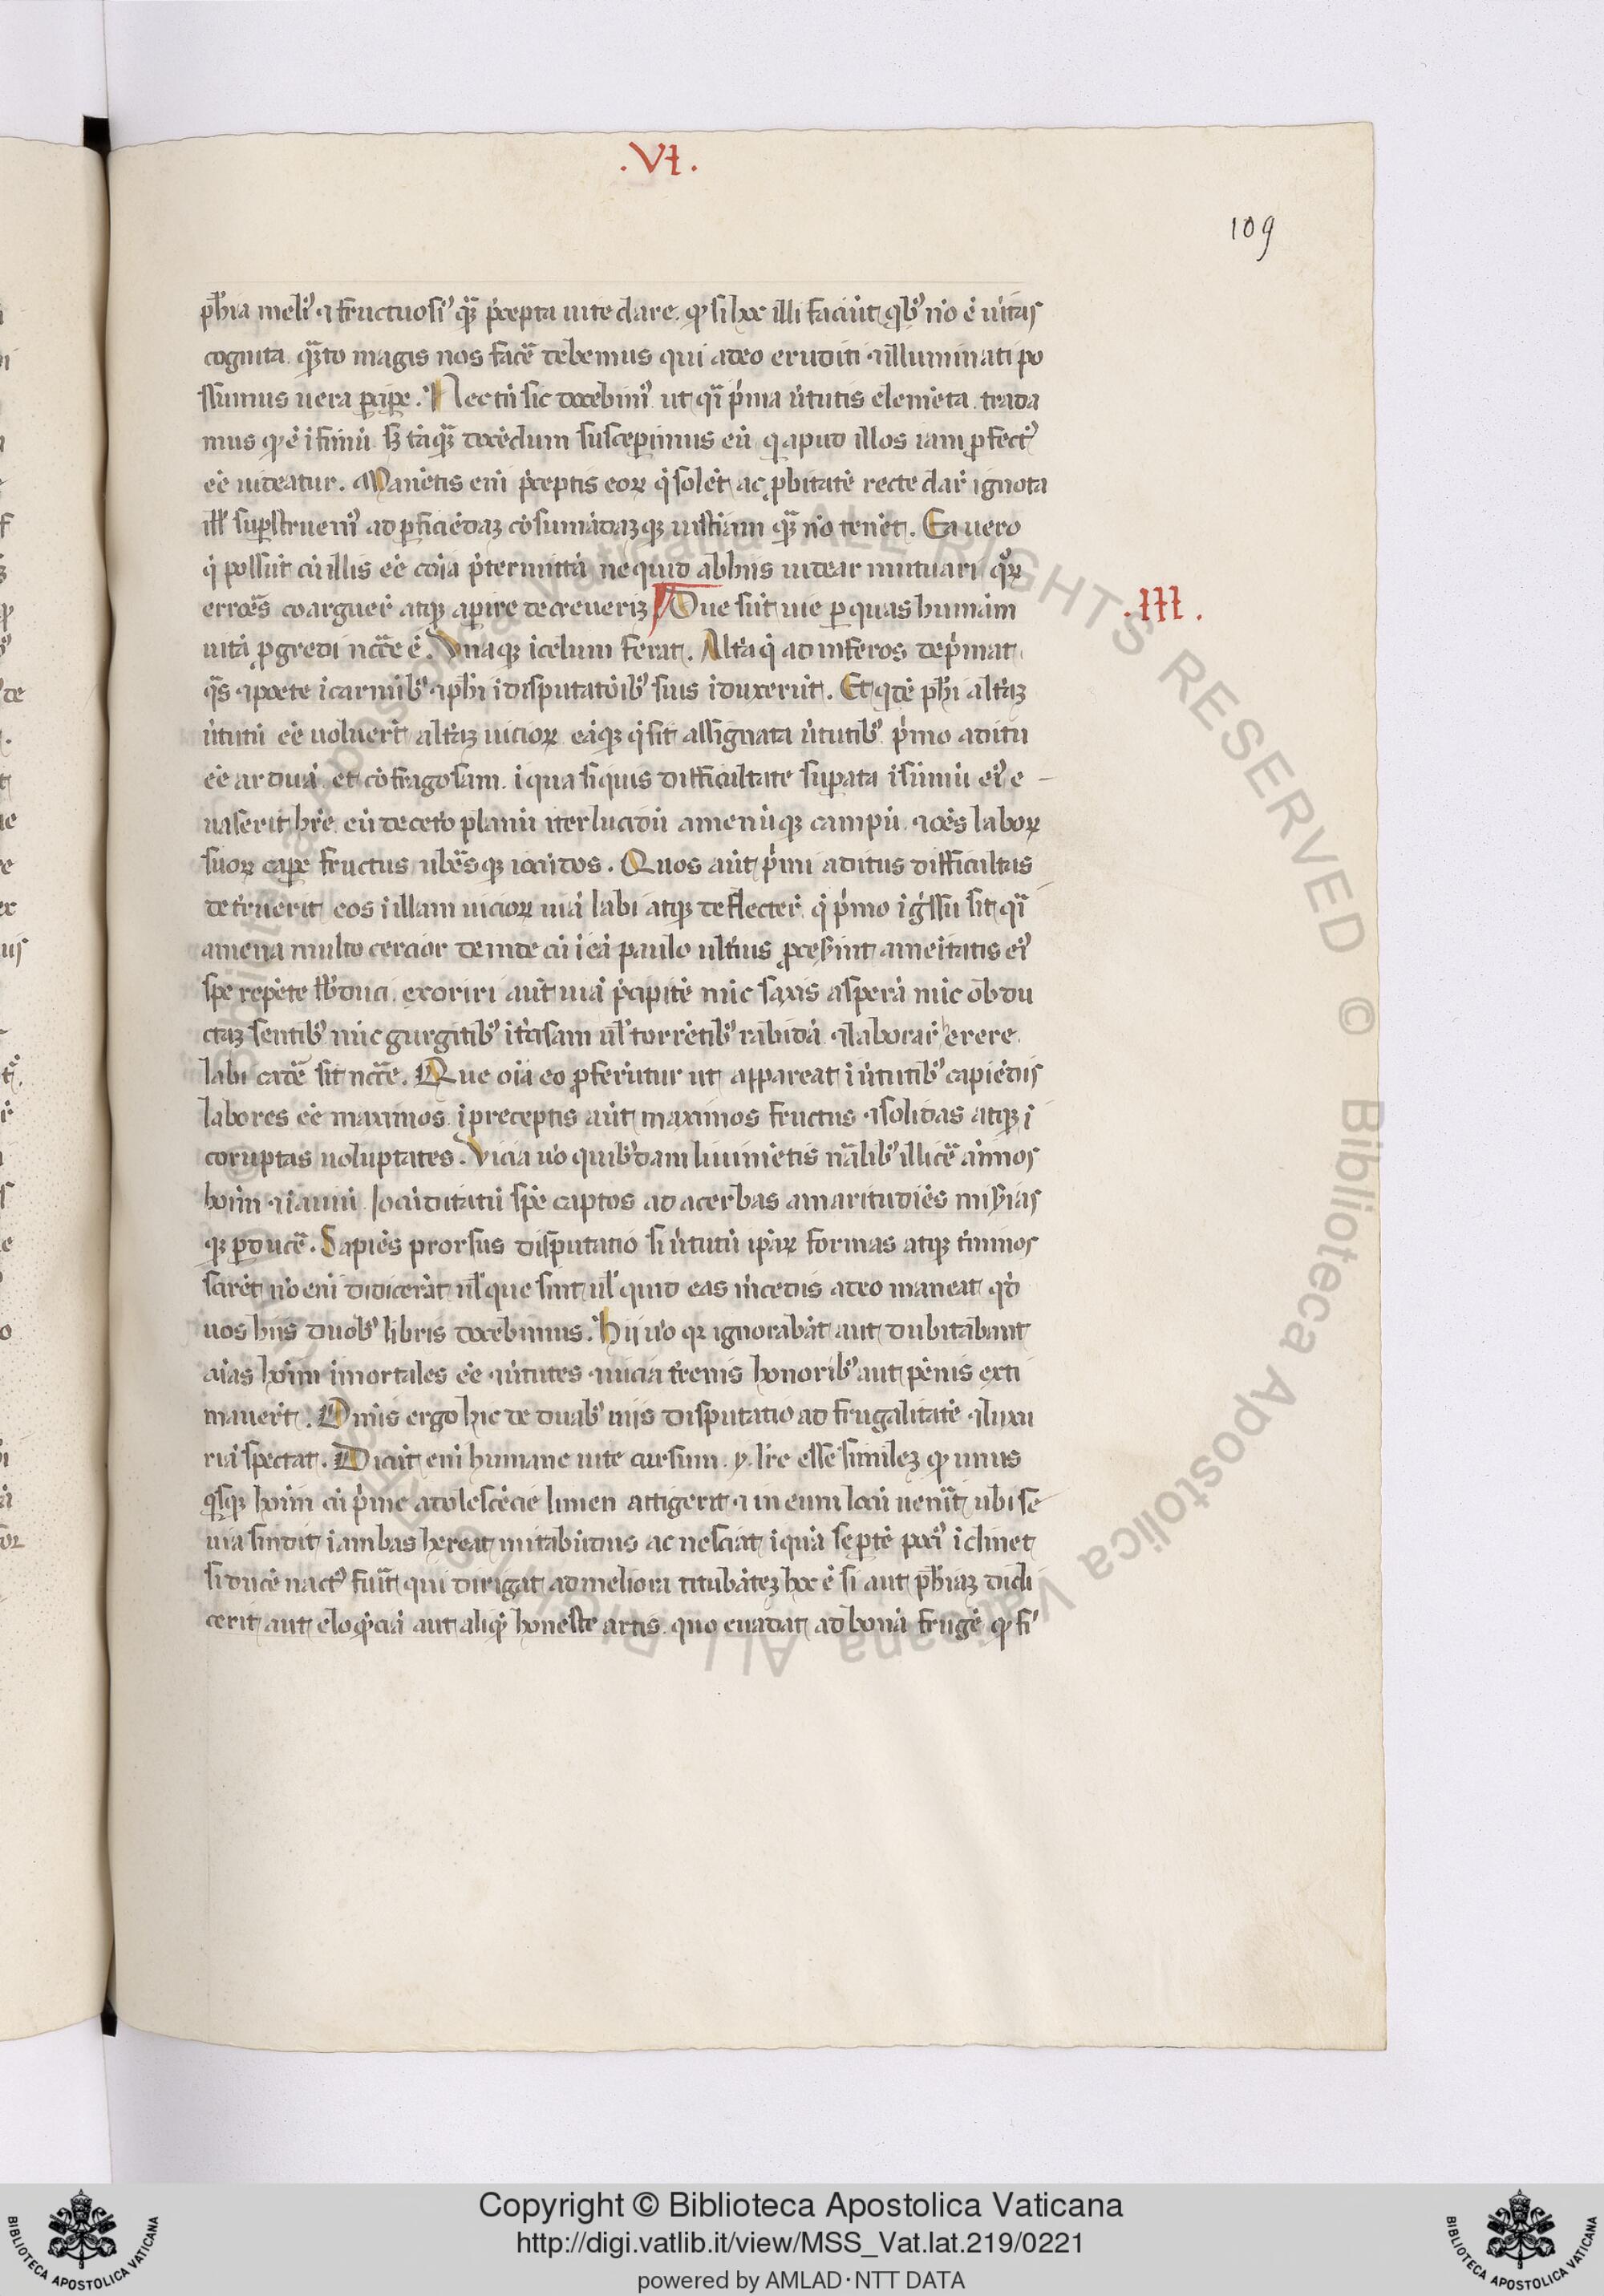 .VI.
109
phīa meli᷒ ⁊ fructuosi᷒ qꝫ p̄cepta uite dare. ꝙ si hoc illi faciūt qb᷒ nō ē ūitas
cognita. qȝto magis nos facē debemus qui adeo eruditi ⁊ illuminati po
ssumus uera ꝑciꝑe. Nec tn̄ sic docebim᷒ ut q̄i p̄ma ūtutis elemēta trada
mus ꝙ ē ifinitū sꝫ tāqȝ docēdum suscepimus eū q apud illos iam ꝑfect᷒
eē uideatur. Manētis eni p̄ceptis eoꝝ q̄ solēt ac ꝓbitatē recte dar̄ ignota
ill' suꝑstruem᷒ ad ꝑficiēdaꝫ cōsumādaꝫqꝫ iustitiam qȝ nō tenēt. Ea uero
q̄ possūt cū illis eē cōia p̄termittā ne quid ab hiis uidear mutuari quoꝝ
errores coarguer̄ atqꝫ aꝑire decreueriꝫ Due sūt uie ꝑ quas humām
.III.
uitā ꝓgredi ncc̄e ē. Vnaqꝫ icelum ferat. Alt̄a q̄ ad inferos dep̄mat
q̄s ⁊ poete i carmīb᷒ ⁊ phī i disputatōib᷒ suis iduxerūt. Et qdē phī alt̄aꝫ
ūtutū eē uoluer̄t alt̄aꝫ uicioꝝ eāqꝫ q̄ sit assignata ūtutib᷒ p̄mo aditu
eē arduā et cōfragosam. i qua siquis difficultate suꝑata i sūmū ei᷒ e
uaserit hr̄e eū decet̄o planū iter lucidū amenūqꝫ campū ⁊ oēs laboꝝ
suoꝝ caꝑe fructus ub̄esqꝫ iocūdos. Quos aūt p̄mi aditus difficultas
det̄ruerit eos i illam uicioꝝ uiā labi atqꝫ deflecter̄ q̄ p̄mo iḡssu sit q̄i
amena multo cercior deinde cū i eā paulo ult̄ius ꝓcess̄int ameītatis ei᷒
spē repēte sb̄duci. exoriri aūt uiā p̄cipitē nūc saxis asperā nūc obdu
ctaꝫ sentib᷒ nūc gurgitib᷒ it̄cisam ul' torrētib᷒ rabidā ⁊ laborar̄ herere
labi cadē sit ncc̄e. Que oīa eo ꝓferūtur ut appareat i ūtutib᷒ capiēdis
labores eē maximos i preceptis aūt maximos fructus ⁊ solidas atqꝫ i
coruptas uoluptates. Vicia ūo quib᷒dam liuimētis nālib᷒ illicē aīmos
hoīm ⁊ i anni iocūditatū spē captos ad acerbas amaritudiēs misīas
qꝫ ꝑducē. Sapiēs prorsus disputatio si ūtutū ip̄aꝝ formas atqꝫ t̄minos
scirēt nō eni didicerāt ul' que sint ul' quid eas m̄cedis a deo maneat qd̄
nos hiis duob᷒ libris docebimus. Hii ūo qꝛ ignorabāt aut dubitabant
aīas hoīm imortales eē ⁊ ūtutes ⁊ uicia t̄renis honorib᷒ aut penis exti
mauer̄t. Omīs ergo hic de duab᷒ uiis disputatio ad frugalitatē ⁊ luxu
riā spectat. Dicūt eni humane uite cursum .y. lr̄e esse simileꝫ ꝙ unus
qisqꝫ hoīm cū p̄me adolescēcie limen attigerit ⁊ in eum locū uenīt ubi se
uia findit i ambas hereat nutabūdus ac nesciāt i quā se ꝑtē poci᷒ iclinet
si ducē nact᷒ fuīt qui dirigat ad meliora titubāteꝫ hoc ē si aut phīaꝫ didi
cerit aut eloq̄ciā aut aliq̄ honeste artis. quo euadat ad bonā frugē ꝙ fi᷒
Copyright © Biblioteca Apostolica Vaticana
http://digi.vatlib.it/view/MSS_Vat.lat.219/0221
powered by AMLAD·NTT DATA